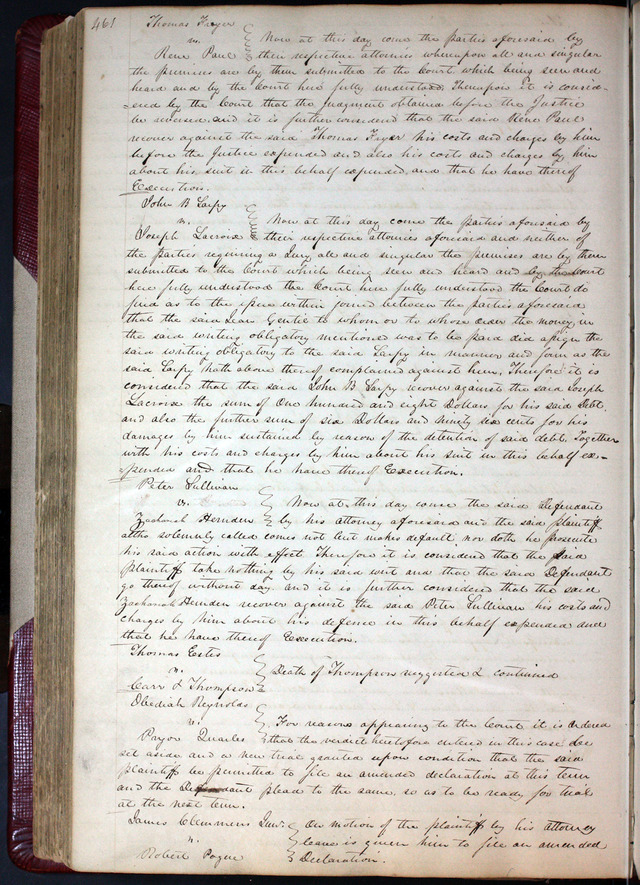 461 Thomas Fryer
vs.
Rene Paul
Now at this day come the parties aforesaid by
their respective attornies whereupon all and singular
the premises are by them submitted to the Court which being seen and
heard and by the Court here fully understood. Thereupon it is consid-
-ered by the Court that the Judgment obtained before the Justice
be and it is further considered that the said Rene Paul
recover against the said Thomas Fryer his costs and charges by him
before the Justice expended and also his costs and charges by him
about his suit in this behalf expended and that he have thereof
Execution.
John B Sarpy
vs.
Joseph Lacroix
Now at this day come the parties aforesaid by
their respective attornies aforesaid and neither of
the parties requiring a Jury all and singular the premises are by them
submitted to the Court which being seen and heard and by the Court
here fully understood the Court here fully understood the Court do
find as to the issue within joined between the parties aforesaid
that the said Jean Gentie to whom or to whose order the money in
the said writing obligatory mentioned was to be paid did assign the
said writing obligatory to the said Sarpy in manner and form as the
said Sarpy hath above thereof complained against him, Therefore it is
considered that the said John B Sarpy recover against the said Joseph
Lacroix the sum of One hundred and eight Dollars for his said Debt
and also the further sum of six Dollars and ninety six cents for his
damages by him sustained by reason of the detention of said debt. Together
with his costs and charges by him about his suit in this behalf ex-
-pended and that he have thereof Execution.
Peter Sullivan
vs.
Zachariah Hernden
Now at this day come the said Defendant
by his attorney aforesaid and the said plaintiff
altho solemnly called comes not but makes default, nor doth he prosecute
his said action with effect. Therefore it is considered that the said
plaintiff take nothing by his said writ and that the said Defendant
go thereof without day and it is further considered that the said
Zachariah Hernden recover against the said Peter Sullivan his costs and
charges by him about his defense in this behalf expended and
that he have thereof Execution.
Thomas Estes
vs.
Carr & Thompson
Death of Thompson suggested & continued
Obediah Reynolds
vs.
Pryor Quarles
For reasons appearing to the Court it is ordered
that the verdict heretofore entered in this case be
set aside and a new trial granted upon condition that the said
plaintiff be permitted to file an amended declaration at this term
and the Defendant plead to the same, so as to be ready for trial
at the next term.
James Clemmens Junr.
vs.
Robert Payne
On motion of the plaintiff by his attorney
leave is given him to file an amended
Declaration.